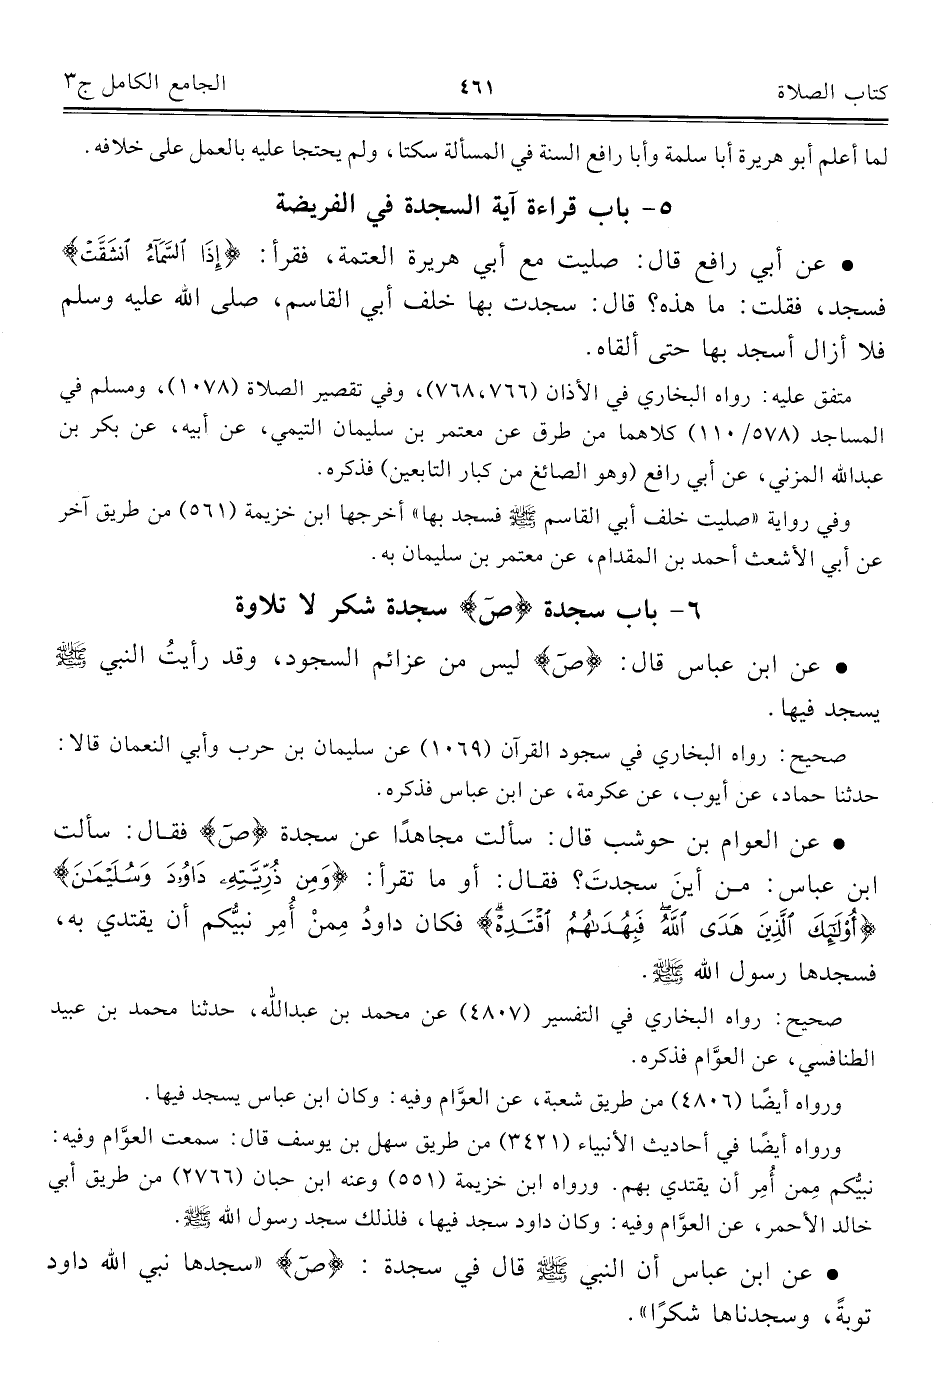 كتاب الصلاة ٤٦١ الجامع الكامل ج٣
لما أعلم أبو هريرة أبا سلمة وأبا رافع السنة في المسألة سكتا، ولم يحتجا عليه بالعمل على خلافه.
٥- باب قراءة آية السجدة في الفريضة
● عن أبي رافع قال: صليت مع أبي هريرة العتمة، فقرأ: ﴿إِذَا ٱلسَّمَآءُ ٱنشَقَّتْ﴾
فسجد، فقلت: ما هذه؟ قال: سجدت بها خلف أبي القاسم، صلى الله عليه وسلم
فلا أزال أسجد بها حتى ألقاه.
متفق عليه: رواه البخاري في الأذان (٧٦٦،٧٦٨)، وفي تقصير الصلاة (١٠٧٨)، ومسلم في
المساجد (٥٧٨/ ١١٠) كلاهما من طرق عن معتمر بن سليمان التيمي، عن أبيه، عن بكر بن
عبدالله المزني، عن أبي رافع (وهو الصائغ من كبار التابعين) فذكره.
وفي رواية «صليت خلف أبي القاسم ﷺ فسجد بها» أخرجها ابن خزيمة (٥٦١) من طريق آخر
عن أبي الأشعث أحمد بن المقدام، عن معتمر بن سليمان به.
٦- باب سجدة ﴿صٓ﴾ سجدة شكر لا تلاوة
● عن ابن عباس قال: ﴿صٓ﴾ ليس من عزائم السجود، وقد رأيتُ النبي ﷺ
يسجد فيها.
صحيح: رواه البخاري في سجود القرآن (١٠٦٩) عن سليمان بن حرب وأبي النعمان قالا:
حدثنا حماد، عن أيوب، عن عكرمة، عن ابن عباس فذكره.
● عن العوام بن حوشب قال: سألت مجاهدًا عن سجدة ﴿صٓ﴾ فقال: سألت
ابن عباس: من أينَ سجدتَ؟ فقال: أو ما تقرأ: ﴿وَمِن ذُرِّيَّتِهِۦ دَاوُۥدَ وَسُلَيْمَـٰنَ﴾
﴿أُوْلَـٰٓئِكَ ٱلَّذِينَ هَدَى ٱللَّهُۖ فَبِهُدَىٰهُمُ ٱقْتَدِهْۗ﴾ فكان داودُ مِمنْ أُمِر نبيُّكم أن يقتدي به،
فسجدها رسول الله ﷺ.
صحيح: رواه البخاري في التفسير (٤٨٠٧) عن محمد بن عبدالله، حدثنا محمد بن عبيد
الطنافسي، عن العوَّام فذكره.
ورواه أيضًا (٤٨٠٦) من طريق شعبة، عن العوَّام وفيه: وكان ابن عباس يسجد فيها.
ورواه أيضًا في أحاديث الأنبياء (٣٤٢١) من طريق سهل بن يوسف قال: سمعت العوَّام وفيه:
نبيُّكم مِمن أُمِر أن يقتدي بهم. ورواه ابن خزيمة (٥٥١) وعنه ابن حبان (٢٧٦٦) من طريق أبي
خالد الأحمر، عن العوَّام وفيه: وكان داود سجد فيها، فلذلك سجد رسول الله ﷺ.
● عن ابن عباس أن النبي ﷺ قال في سجدة : ﴿صٓ﴾ «سجدها نبي الله داود
توبةً، وسجدناها شكرًا».